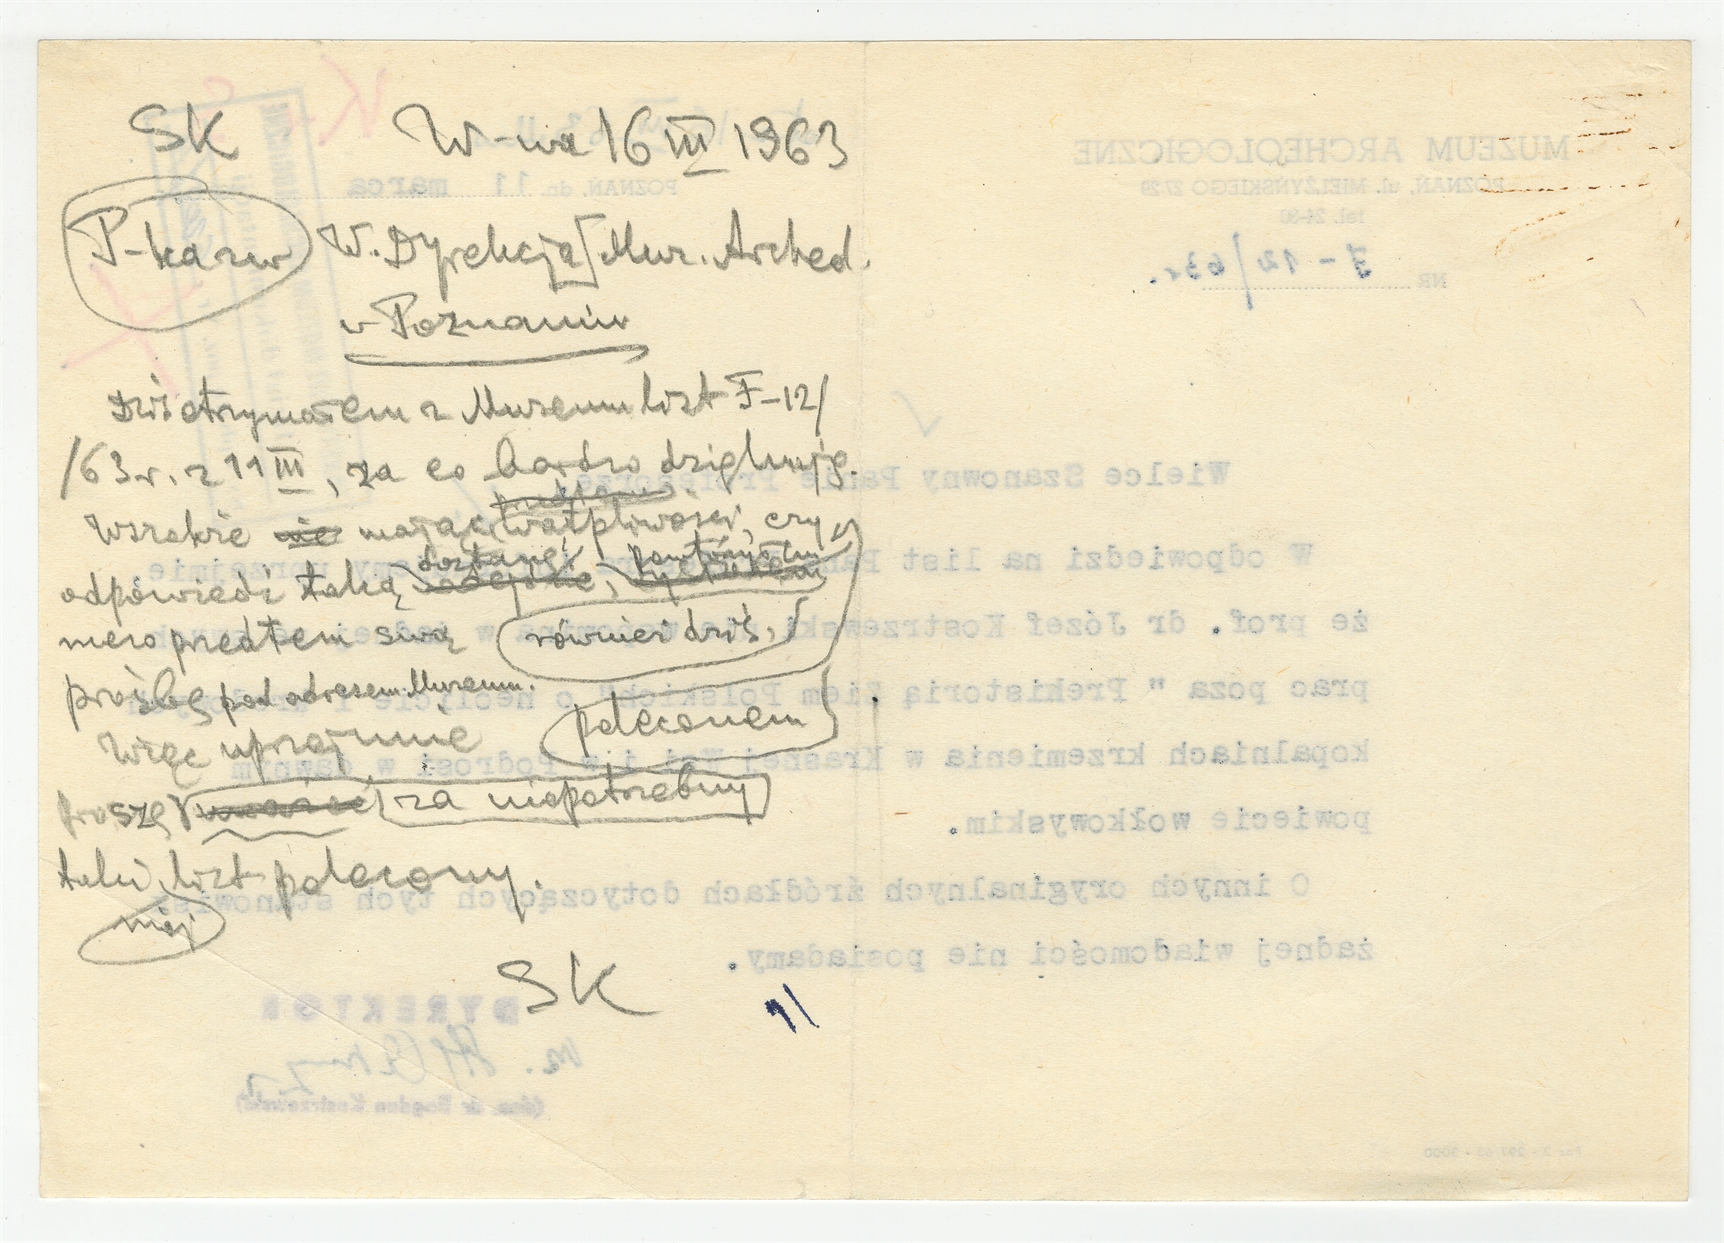 SK W-wa 16 III 1963
P-ka zw W. Dyrekcja Muz. Archeol.
w Poznaniu
Dziś otrzymałem z Muzeum list F-12/
/63 r. z 11 III, za co bardzo dziękuję.
Wszakże nie mając wątpliwości, czy
dostanę powtórzyłem
odpowiedź taką
nieco przedtem swą również dziś,
prośbę pod adresem Muzeum.
Więc uprzejmie poleconem
proszę uważać za niepotrzebny
taki list polecony.
mój
SK 1/
MUZEUM ARCHEOLOGICZNE
POZNAŃ, ul. MIELŻYŃSKIEGO 27/29
tel. 24-30
POZNAŃ, dn. 11 marca
NR 7-12/63 r.
Wielce Szanowny Panie Profesorze
W odpowiedzi na list Pana uprzejmie
że prof. dr Józef Kostrzewski
prac poza "Prehistorią Ziem Polskich" o neolicie
kopalniach krzemienia w Krasnej Wsi i w Podrosi w dawnym
powiecie wołkowyskim.
O innych oryginalnych źródłach dotyczących tych stanowisk
żadnej wiadomości nie posiadamy.
DYREKTOR
(doc. dr Bogdan Kostrzewski)